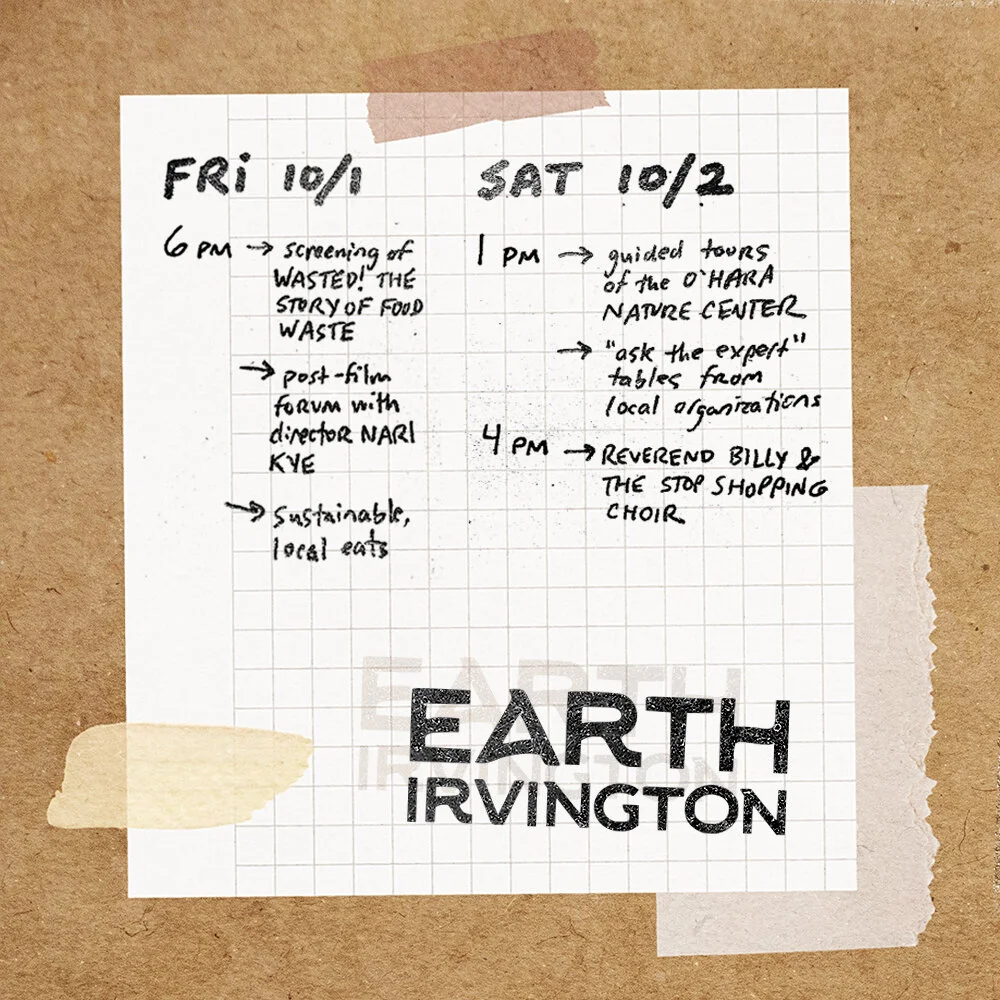 FRi 10/1
6 PM → screening of
WASTED! THE
STORY OF FOOD
WASTE
→ post-film
forum with
director NARI
KYE
→ sustainable,
local eats
SAT 10/2
1 PM → guided tours
of the O'HARA
NATURE CENTER
→ "ask the expert"
tables from
local organizations
4 PM → REVEREND BILLY &
THE STOP SHOPPING
CHOIR
EARTH
IRVINGTON
EARTH
IRVINGTON